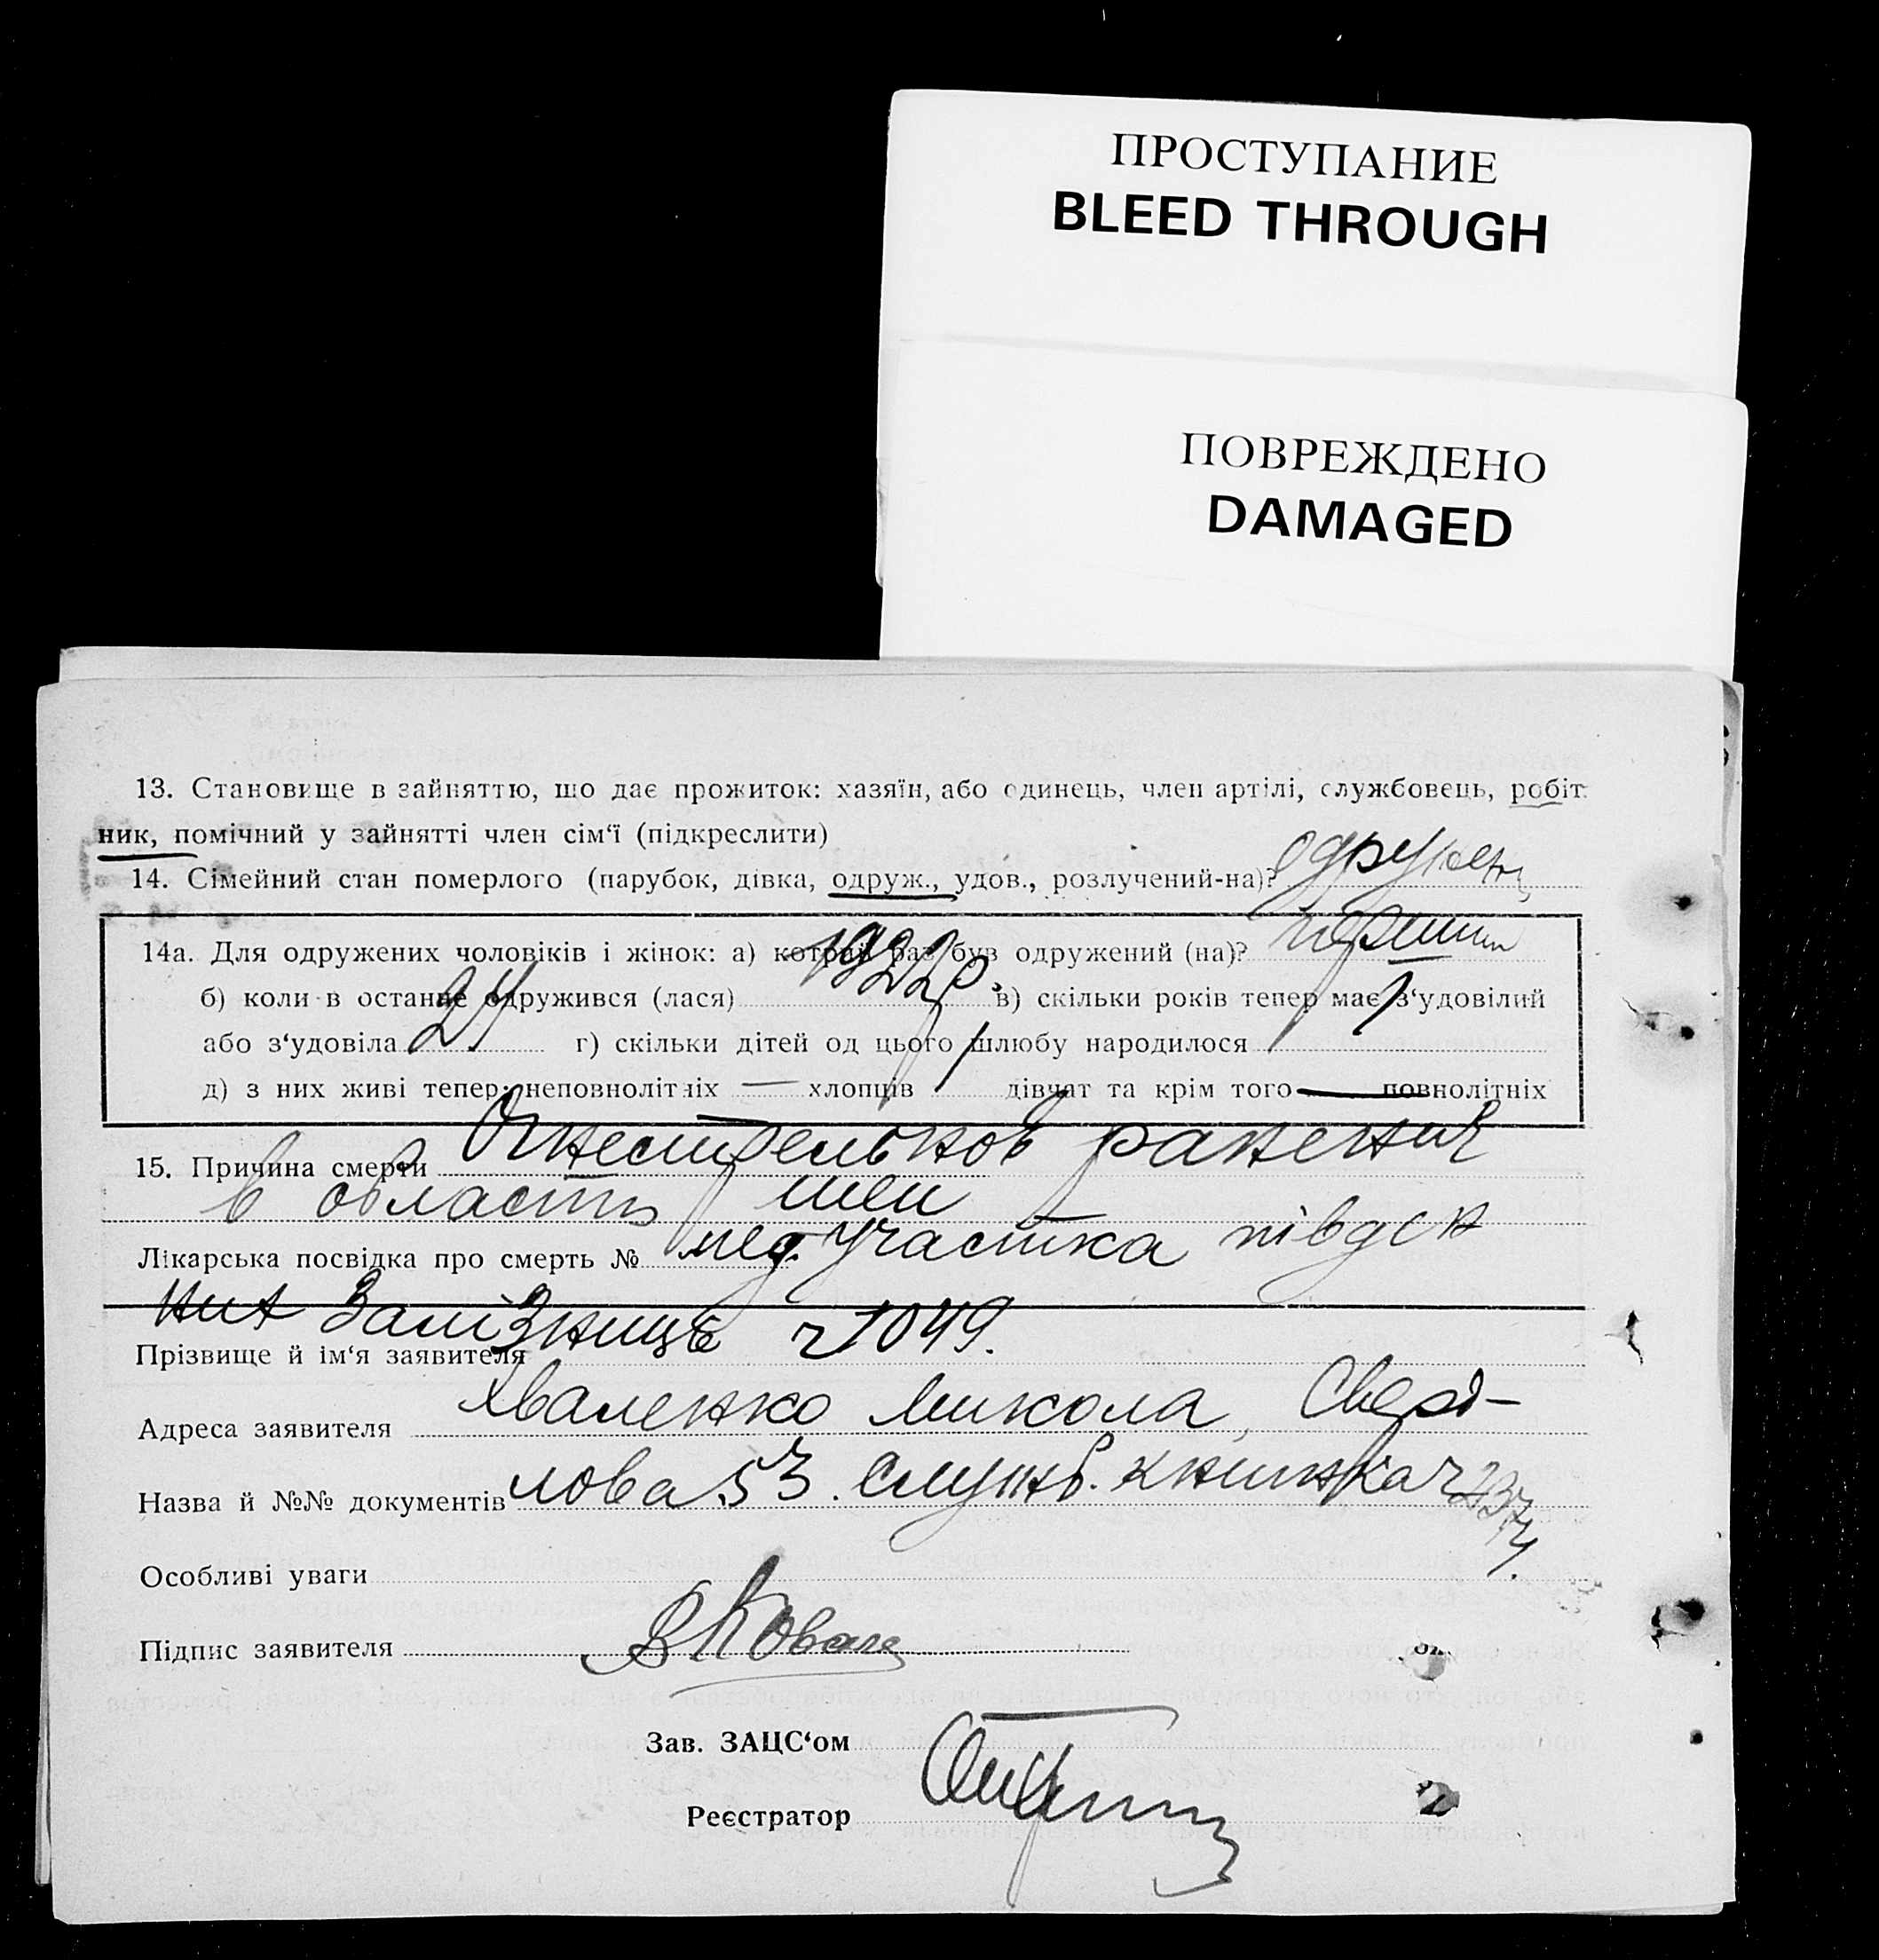 ПРОСТУПАНИЕ
BLEED THROUGH
ПОВРЕЖДЕНО
DAMAGED
13. Становище в зайняттю, що дає прожиток: хазяїн, або одинець, член артілі, службовець, робіт-
ник, помічний у зайнятті член сім‘ї (підкреслити)
14. Сімейний стан померлого (парубок, дівка, одруж., удов., розлучений-на)? одружен
14а. Для одружених чоловіків і жінок: а) котрий раз був одружений (на)? перший
б) коли в останнє одружився (лася) 1922 р. в) скільки років тепер має з‘удовілий
або з‘удовіла 24 г) скільки дітей од цього шлюбу народилося 1
д) з них живі тепер: неповнолітніх — хлопців 1 дівчат та крім того — повнолітніх —
15. Причина смерти Огнестрельное ранение
в область шеи
Лікарська посвідка про смерть № мед. участка півден
них Залізниць ч 1049.
Прізвище й ім‘я заявителя
Адреса заявителя Микола, Сверд-
Назва й №№ документів лова 53. Служб. книжка ч 2374.
Особливі уваги
Підпис заявителя
Зав. ЗАЦС‘ом
Реєстратор